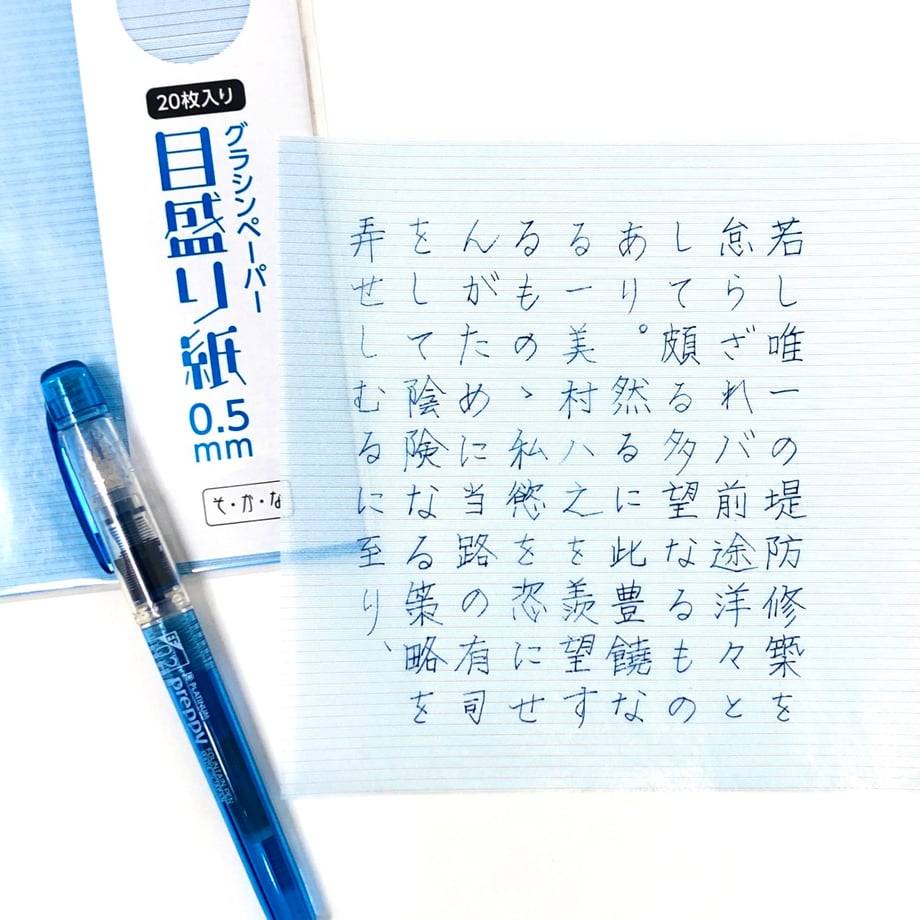 20枚入り
グラシンペーパー
目盛り紙
0.5
mm
そ・か・な
PLATINUM
preppy
FOUNTAIN PEN
若し唯一の堤防修築を
怠らざれバ前途洋々と
して頗る多望なるもの
あり。然るに此豊饒な
る一美村ハ之を羨望す
るものゝ私慾を恣にせ
んがために当路の有司
をして陰険なる策略を
弄せしむるに至り、